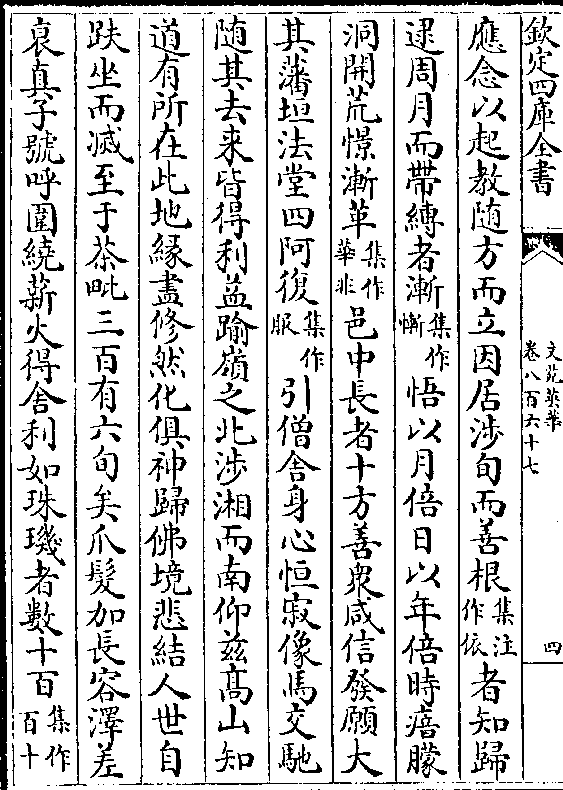 欽定四庫全書
文苑英華
卷八百六十七
四
應念以起教随方而立因居涉旬而善根集注作依者知歸
逮周月而帶縛者漸集作慚悟以月倍日以年倍時瘖矇
洞開荒憬漸革集作華非邑中長者十方善衆咸信發願大
其藩垣法堂四阿復集作服引僧舍身心恒寂像馬交馳
随其去来皆得利益踰嶺之北涉湘而南仰兹髙山知
道有所在此地緣盡修然化俱神歸佛境悲結人世自
趺坐而滅至于荼毗三百有六旬矣爪髪加長容澤差
衰真子號呼圍繞薪火得舎利如珠璣者數十百集作百十